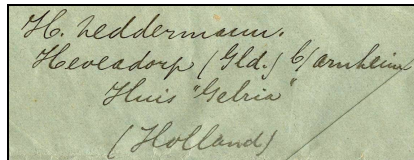 H. Leddermann.
Heveadorp (Gld.) b/arnheim
Huis "Gelria"
(Holland)